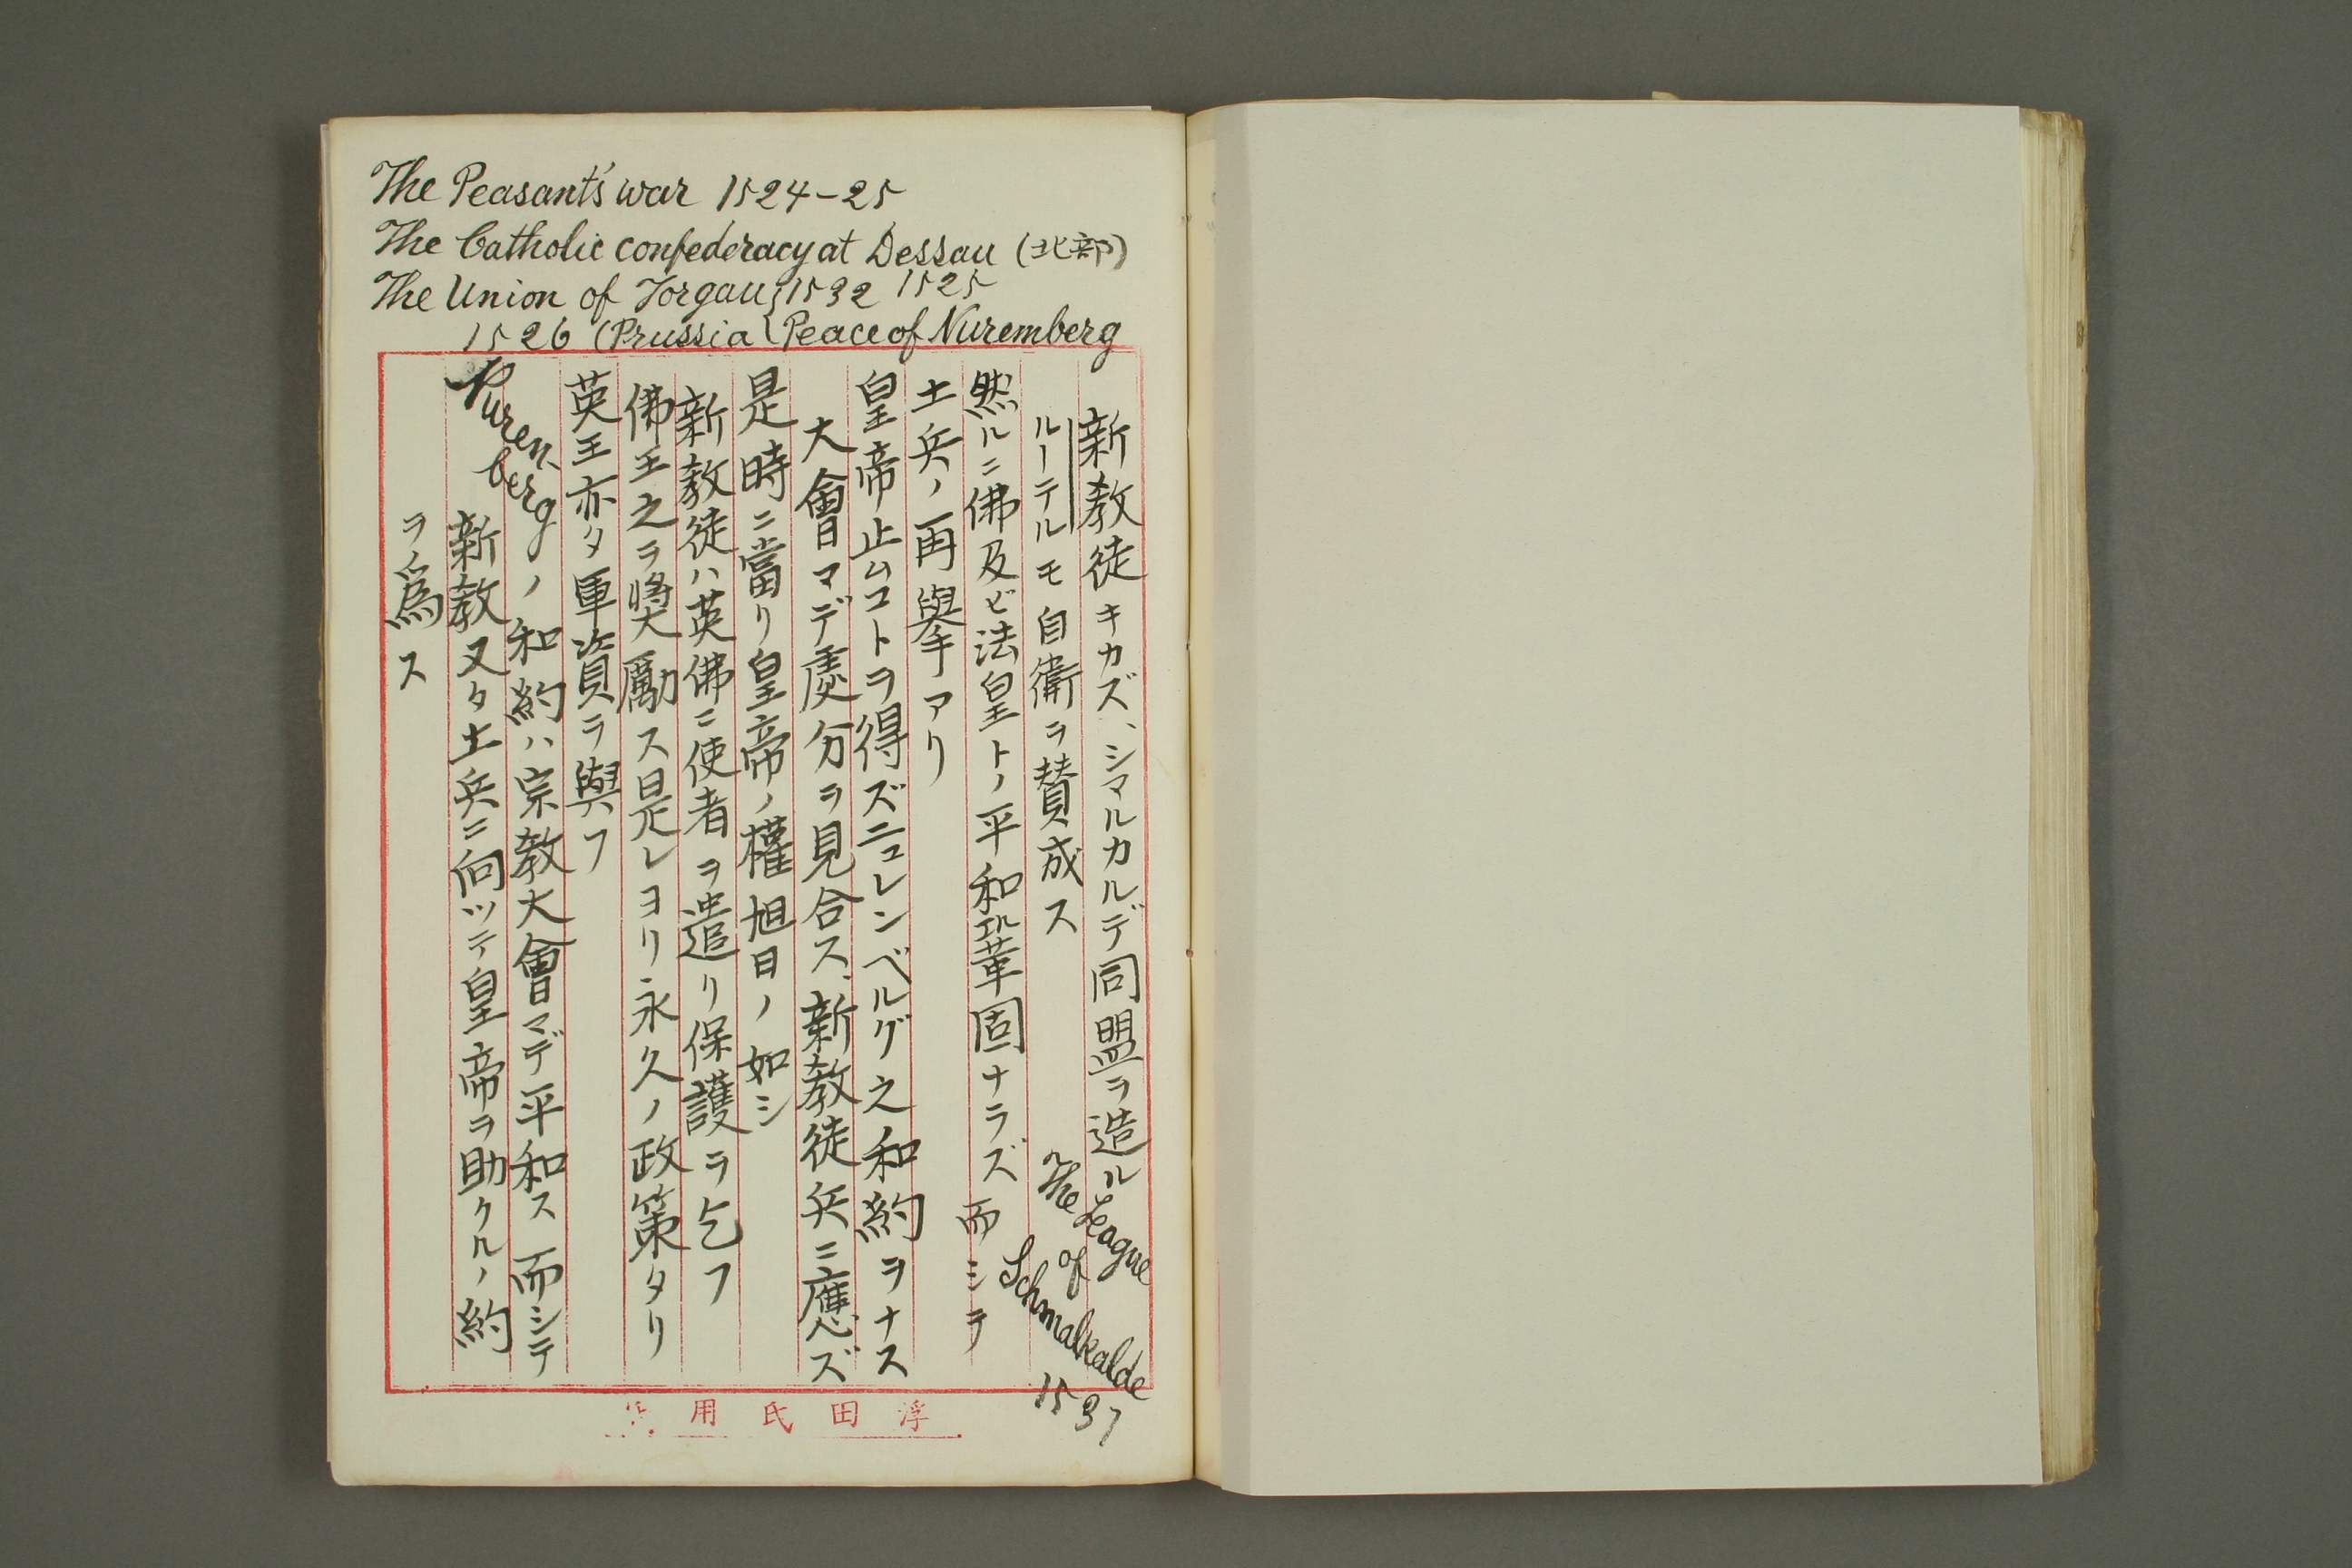 The Peasant's war 1524–25
The Catholic confederacy at Dessau (北部)
1525
The Union of Torgau
1526 (Prussia
1532
Peace of Nuremberg
新教徒キカズ、シマルカルデ同盟ヲ造ル
The League
of
Schmalkalde
1537
ルーテルモ自衛ヲ賛成ス
然ルニ佛及ビ法皇トノ平和鞏固ナラズ而シテ
土兵ノ再擧アリ
皇帝止ムコトヲ得ズニュレンベルグ之和約ヲナス
大會マデ處分ヲ見合ス、新教徒兵ニ應ズ
是時ニ當リ皇帝ノ權旭日ノ如シ
新教徒ハ英佛ニ使者ヲ遣リ保護ヲ乞フ
佛王之ヲ奬勵ス是レヨリ永久ノ政策タリ
英王亦タ軍資ヲ與フ
Nuren-
bergノ和約ハ宗教大會マデ平和ス而シテ
新教又タ土兵ニ向ツテ皇帝ヲ助クルノ約
ヲ爲ス
浮田氏用